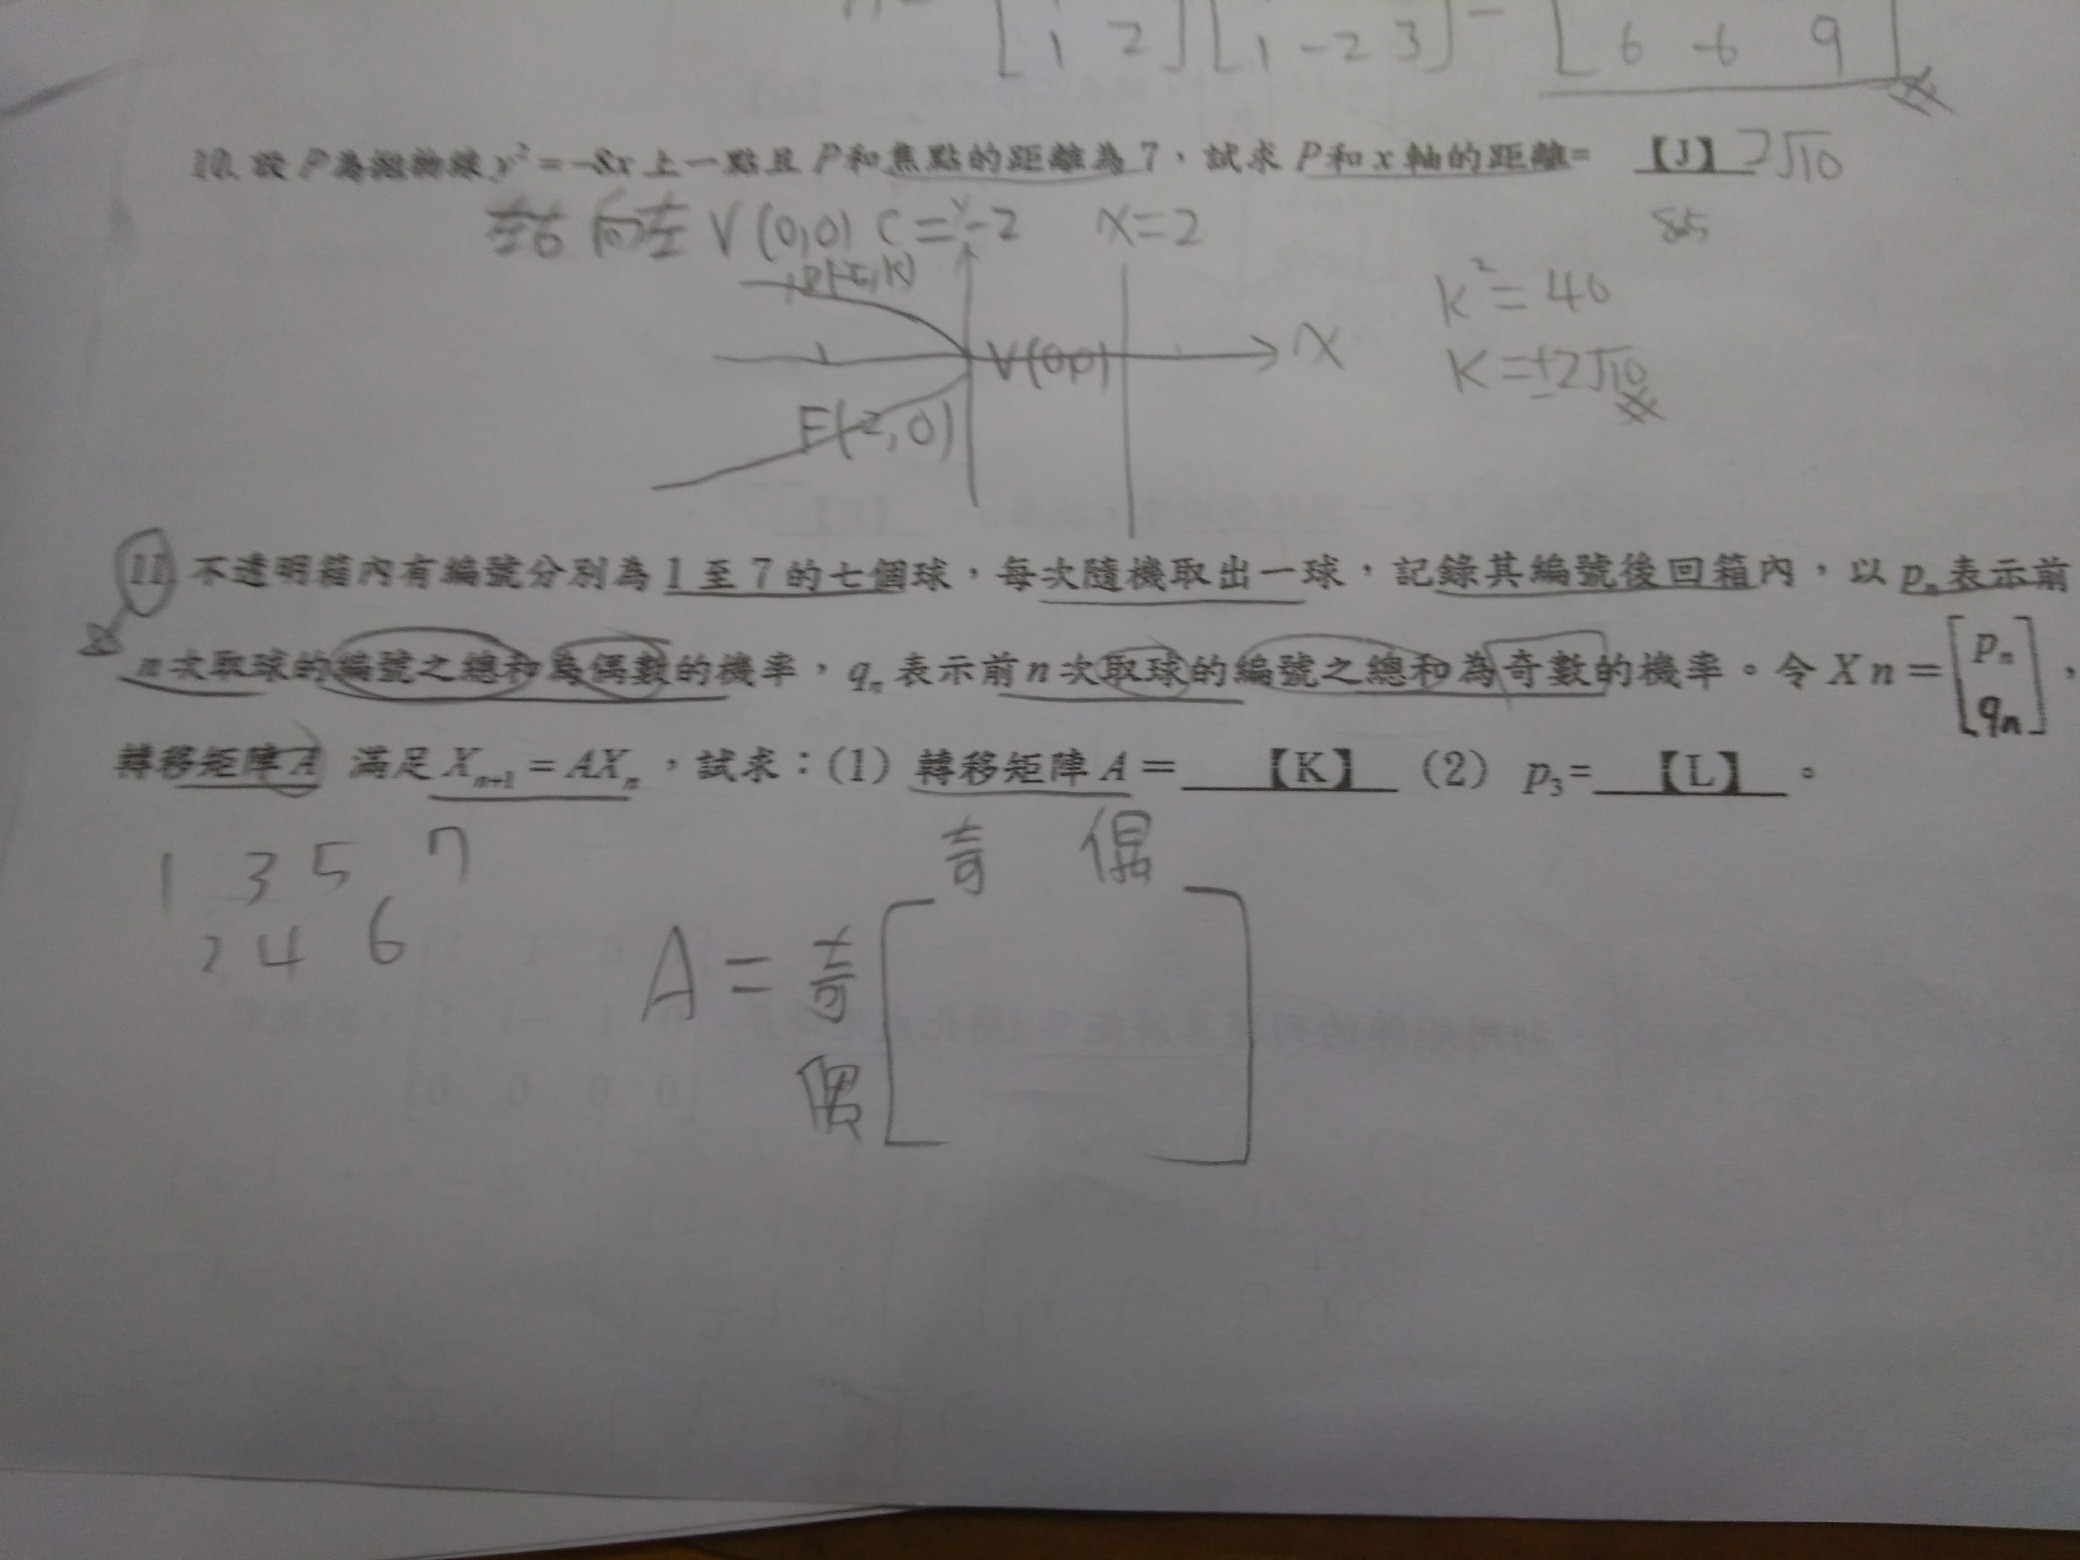 1 2 1 -2 3 = 6 -6 9
10. 設 P 為拋物線 y² = -8x 上一點且 P 和焦點的距離為 7，試求 P 和 x 軸的距離= 【J】 2√10
向左 V(0,0) C = -2 x=2 85
P(-5,K) K² = 40
V(0,0) X K = ±2√10
F(-2,0)
11 不透明箱內有編號分別為 1 至 7 的七個球，每次隨機取出一球，記錄其編號後回箱內，以 pₙ 表示前
n 次取球的編號之總和為偶數的機率，qₙ 表示前 n 次取球的編號之總和為奇數的機率。令 X n = [pₙ qₙ]，
轉移矩陣 A 滿足 Xₙ₊₁ = AXₙ，試求：(1) 轉移矩陣 A = 【K】 (2) p₃= 【L】 。
1 3 5 7 奇 偶
2 4 6 A = 奇
偶